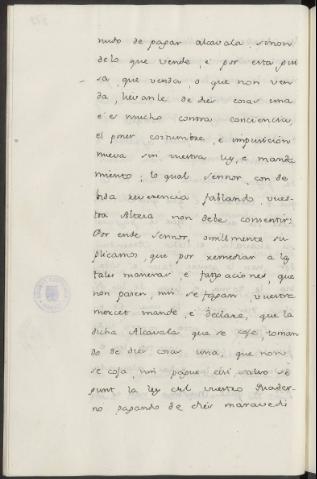 nudo de pagar alcavala, sinon
de lo que vende, e por esta pui
sa, que venda, o que non ven
da, lievanle de dies cosas una
e es mucho contra conciencia
el poner costumbre, e imposición
nueva sin vuestra ley, e manda
miento; lo qual sennor, con de
bida reverencia fablando, vues-
tra Alteza non debe consentir:
Por ende sennor, omilmente su
plicamos, que por remediar a las
tales maneras, e faspaciones, que
non pasen, nin se fagan, vuestra
merced mande, e declare, que la
dicha Alcavala que se coje, toman
do de dies cosas una, que non
se coja, nin pague así salvo se
punt la ley del vuestro Quader-
no pagando de dies maravedi